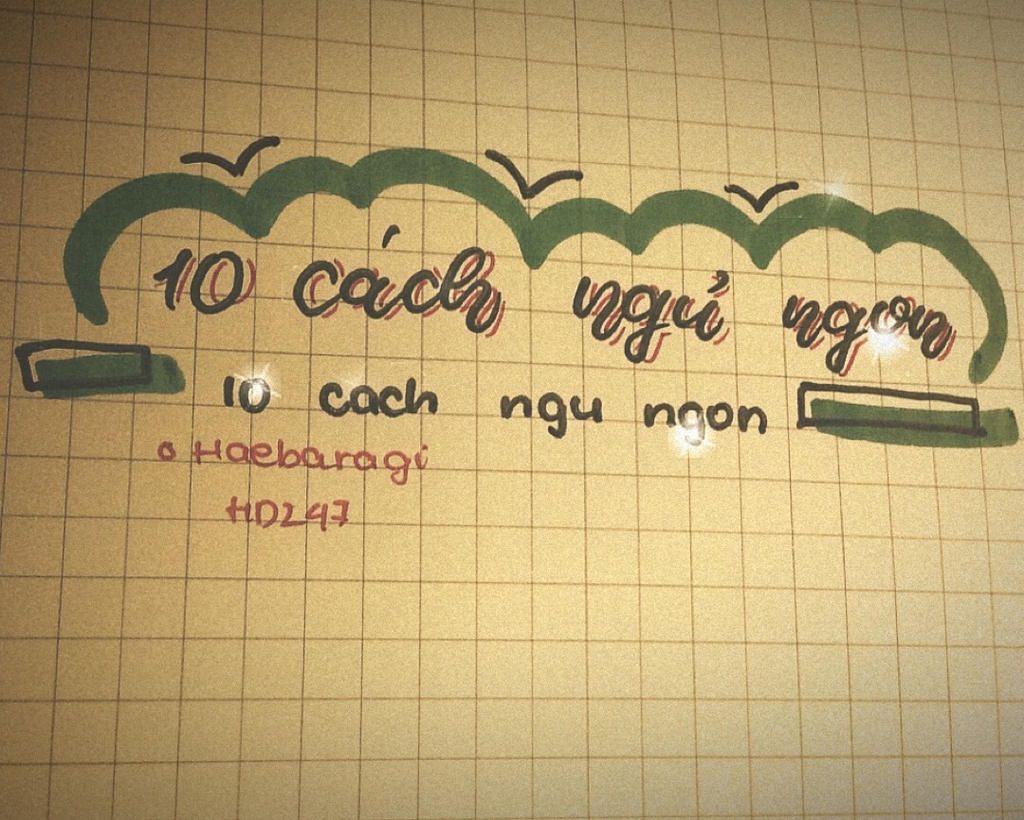 10 cách ngủ ngon
10 cach ngu ngon
Haebaragi
HD247